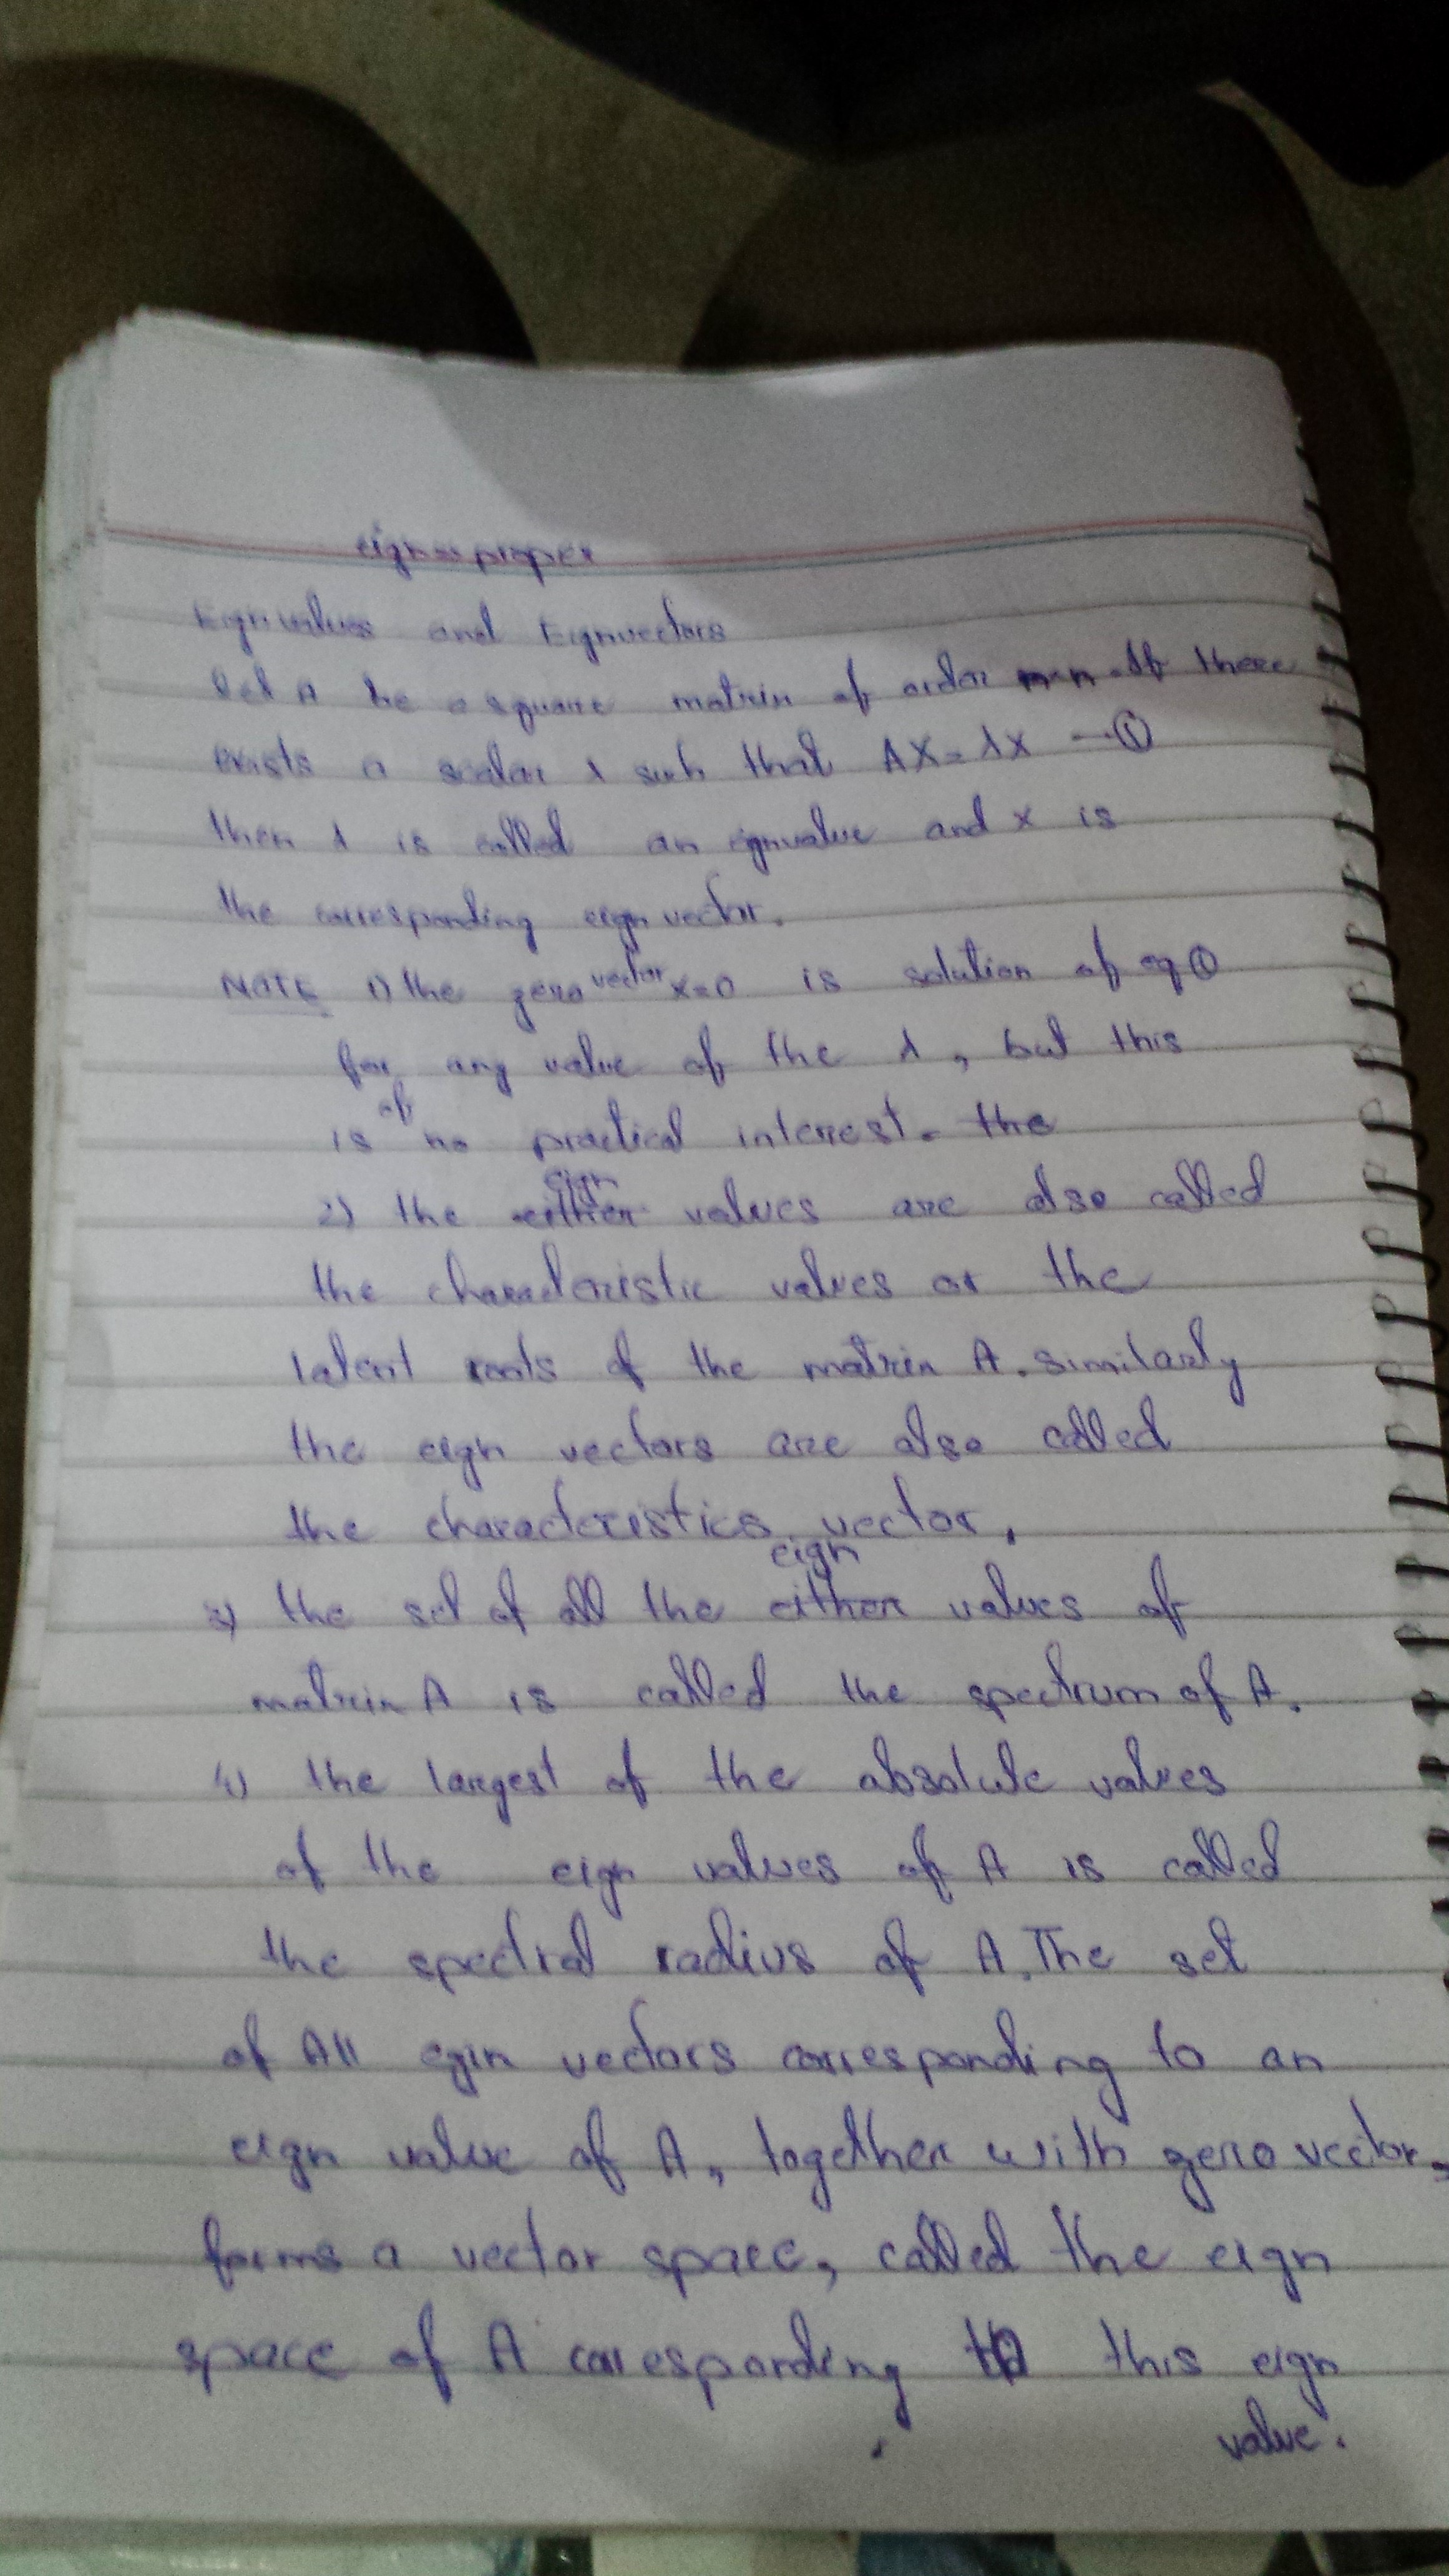 eign → proper
Eignvalues and Eignvectors
Let A be a square matrix of order n. If there
exists a scalar λ such that AX = λX —①
then λ is called an eignvalue and x is
the corresponding eign vector.
NOTE 1) the zero vector x=0 is solution of eq ①
for any value of the λ, but this
is of no practical interest. the
2) the eign values are also called
the characteristic values or the
latent roots of the matrix A. similarly
the eign vectors are also called
the characteristics vector.
3) the set of all the eign either values of
matrix A is called the spectrum of A.
4) the largest of the absolute values
of the eign values of A is called
the spectral radius of A. The set
of All egin vectors corresponding to an
eign value of A, together with zero vector,
forms a vector space, called the eign
space of A corresponding to this eign
value.